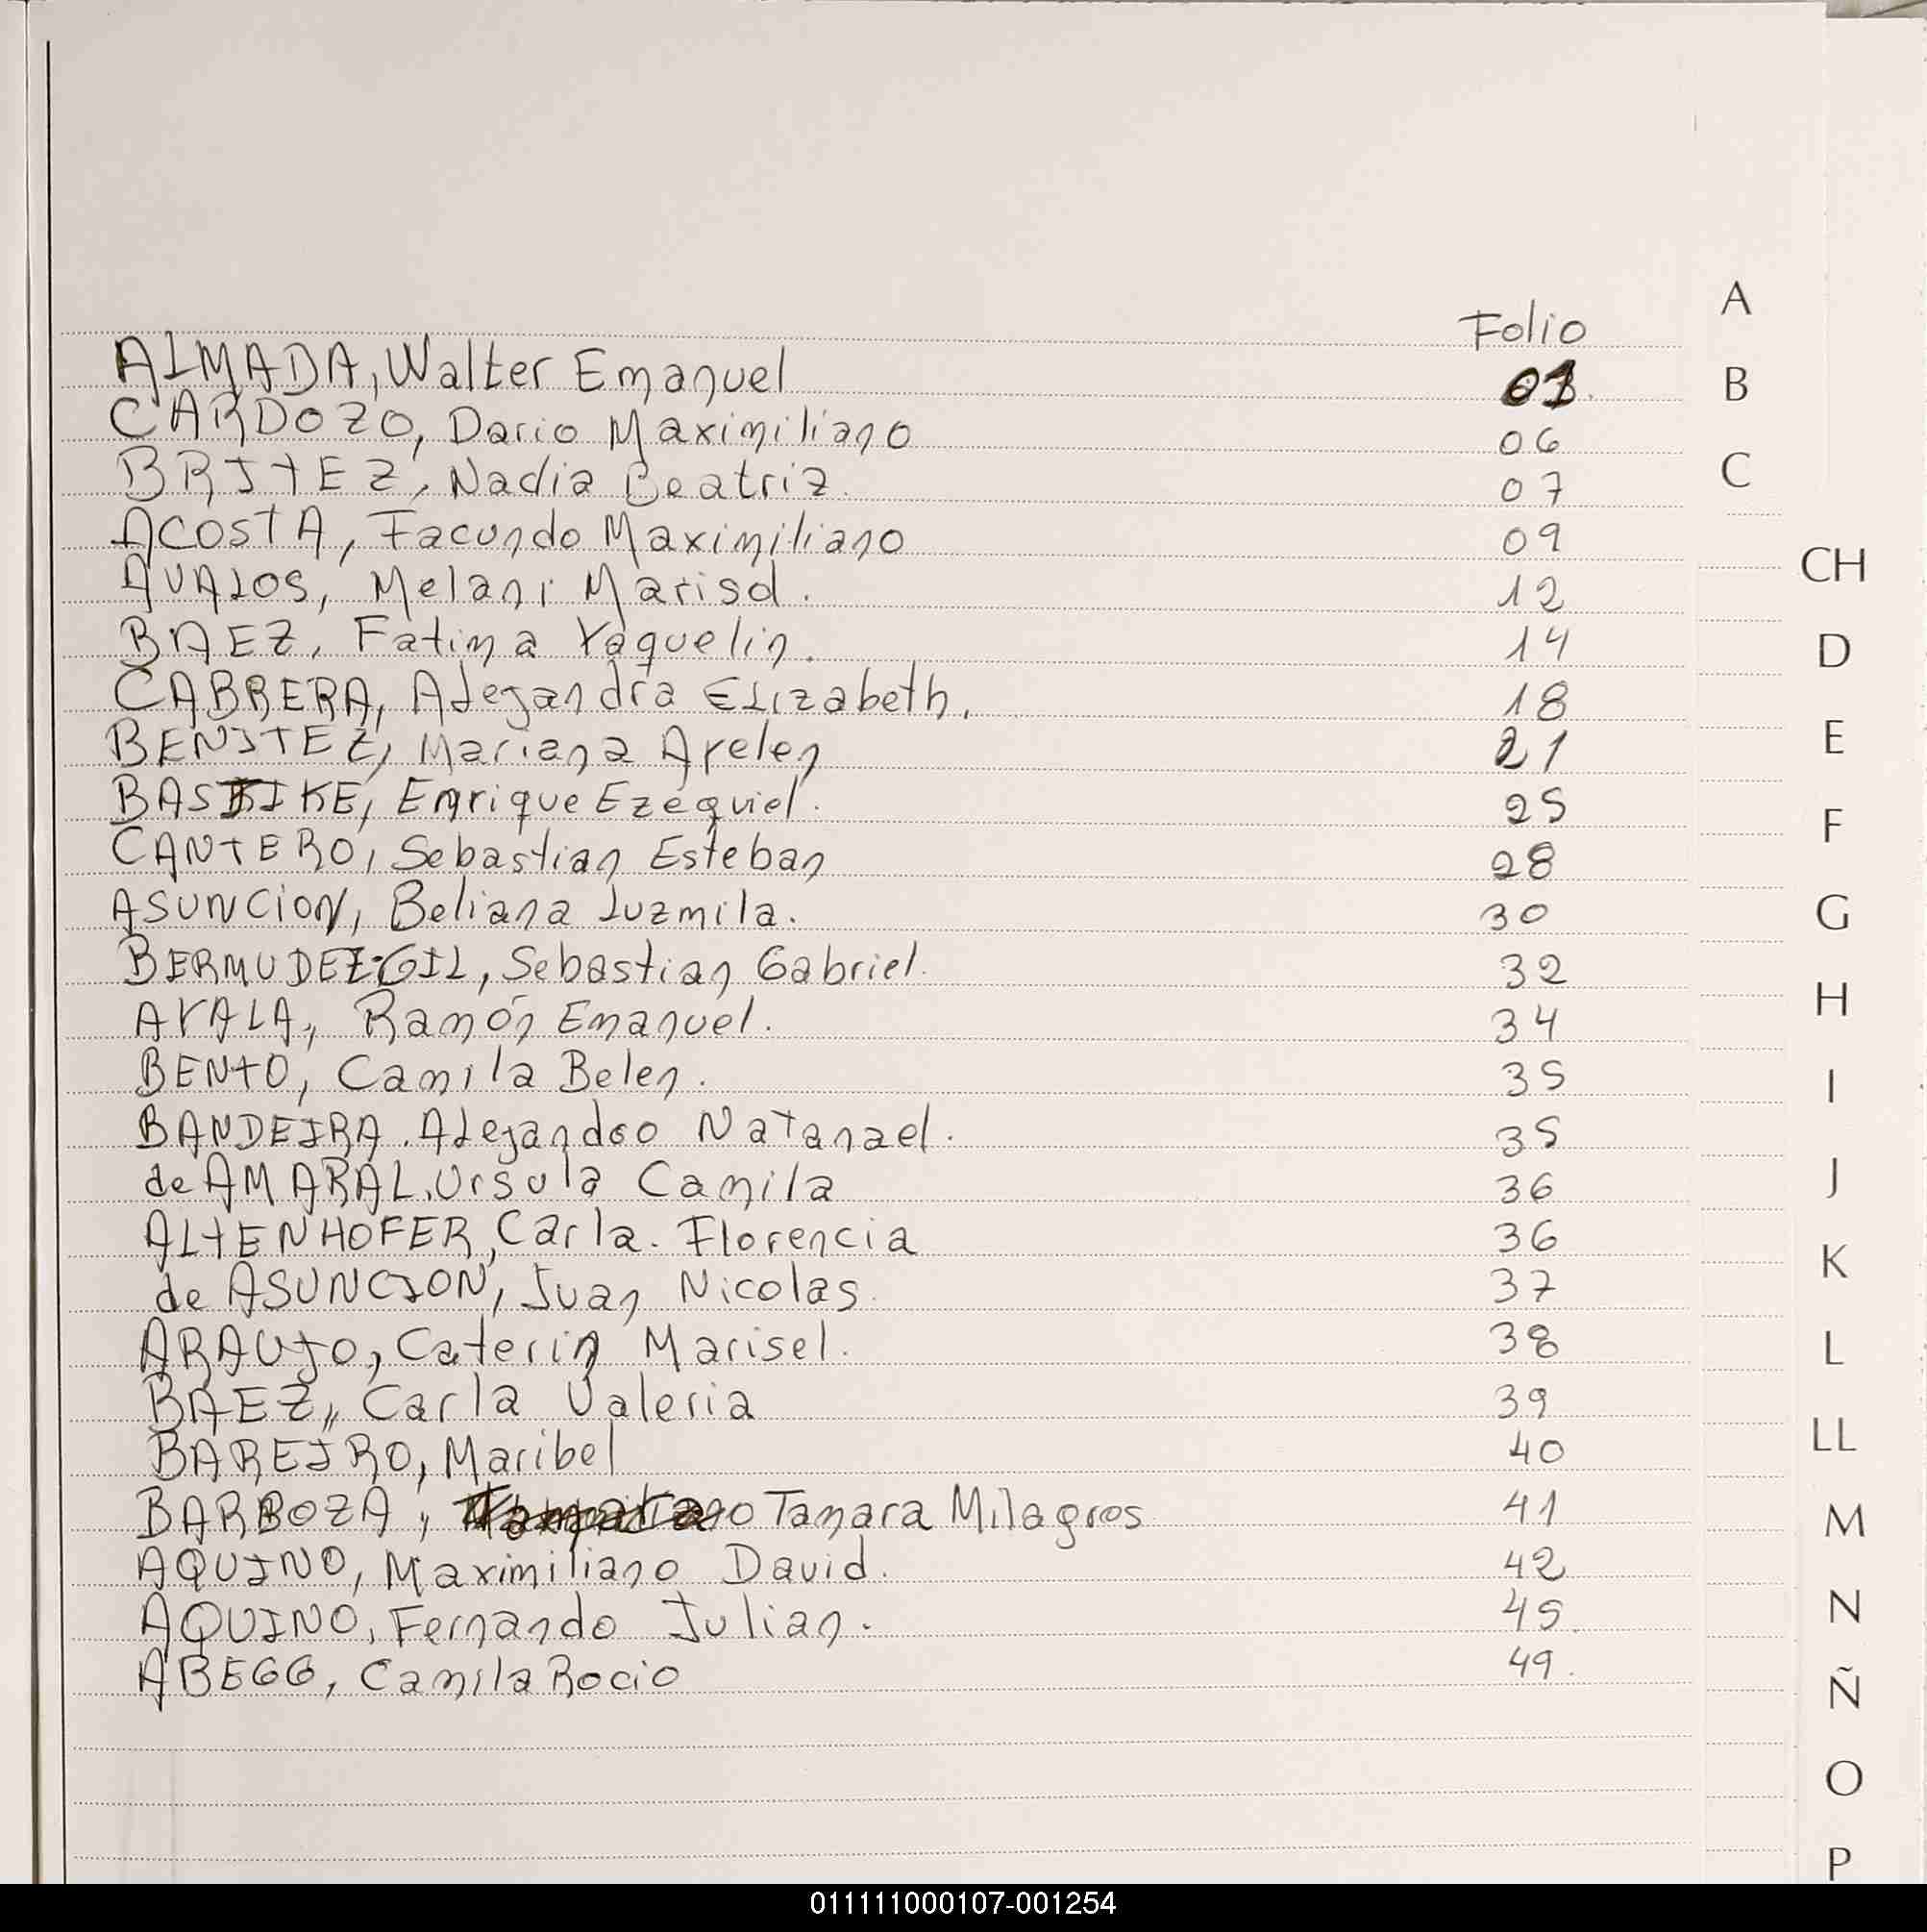 Folio
ALMADA, Walter Emanuel 03.
CARDOZO, Dario Maximiliano 06
BRITEZ, Nadia Beatriz. 07
ACOSTA, Facundo Maximiliano 09
AVALOS, Melani Marisol. 12
BAEZ, Fatima Yaquelin. 14
CABRERA, Alejandra Elizabeth. 18
BENITEZ, Mariana Ayelen 21
BASTIKE, Enrique Ezequiel. 25
CANTERO, Sebastian Esteban 28
ASUNCION, Beliana Luzmila. 30
BERMUDEZ-GIL, Sebastian Gabriel. 32
AYALA, Ramón Emanuel. 34
BENTO, Camila Belen. 35
BANDEIRA. Alejandro Natanael. 35
de AMARAL, Ursula Camila 36
ALTENHOFER, Carla. Florencia 36
de ASUNCION, Juan Nicolas. 37
ARAUJO, Caterin Marisel. 38
BAEZ,, Carla Valeria 39
BAREIRO, Maribel 40
BARBOZA, Tamara Milagros 41
AQUINO, Maximiliano David. 42
AQUINO, Fernando Julian. 45.
ABEGG, Camila Rocio 49.
A
B
C
CH
D
E
F
G
H
I
J
K
L
LL
M
N
Ñ
O
P
011111000107-001254